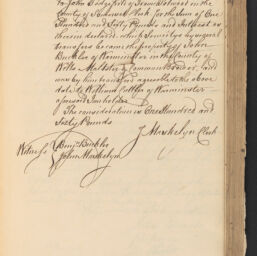 to John Dodge Esq of Stourton in the
County of Somerset Clerk for the Sum of One
Hundred and Sixty Pounds and Interest as
therein declared which Security by several
transfers became the property of John
Buckler of Warminster in the County of
Wilts Maltster & Common Brewer and
was by him transferred agreeable to the above
date to William Cuttler of Warminster
aforesaid Innholder
The consideration is One Hundred and
Sixty Pounds
J Maskelyn Clerk
Witness Benj Buckler
John Maskelyn